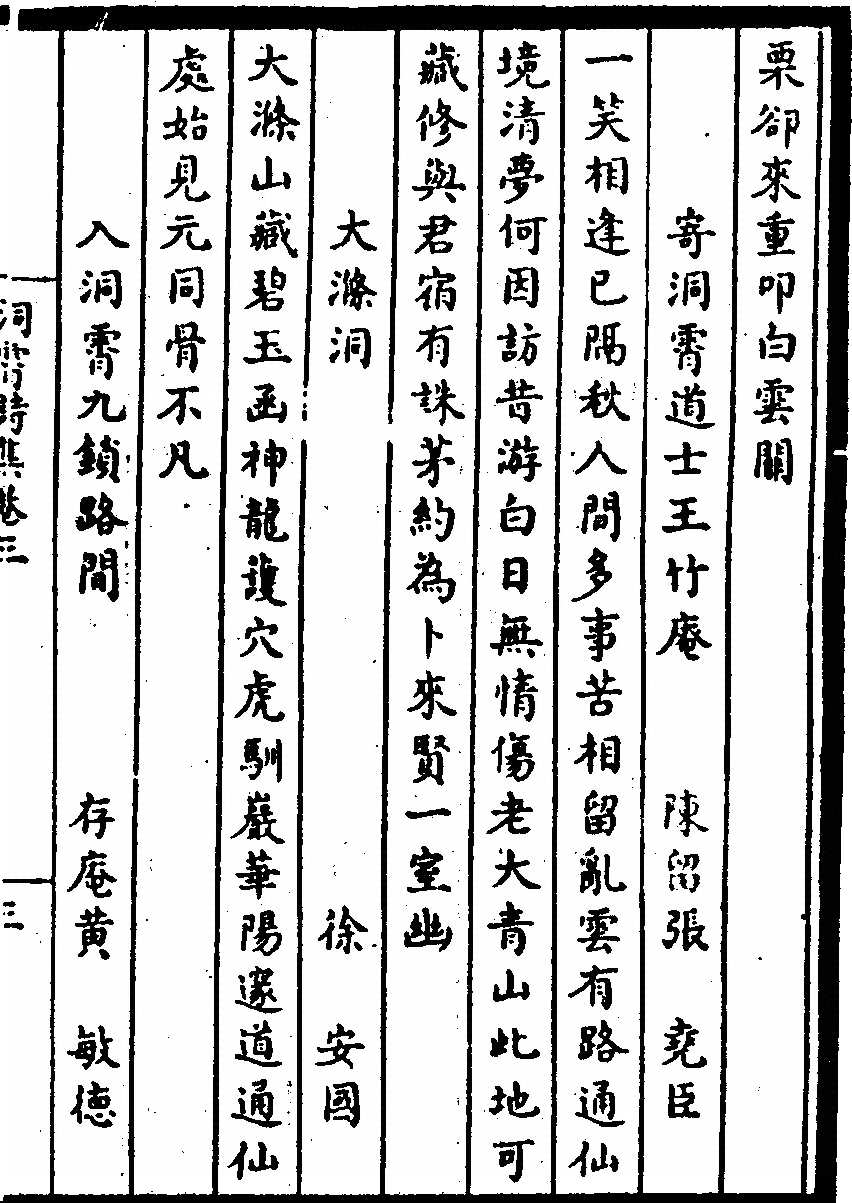 栗卻來重叩白雲關
寄洞霄道士王竹庵 陳留張 堯臣
一笑相逢已隔秋人間多事苦相留亂雲有路通仙
境清夢何因訪昔游白日無情傷老大青山此地可
藏修與君宿有誅茅約為卜來賢一室幽
大滌洞 徐 安國
大滌山藏碧玉函神龍護穴虎馴巖華陽邃道通仙
處始見元同骨不凡
入洞霄九鎖路間 存庵黄 敏德
洞霄詩集卷三
三